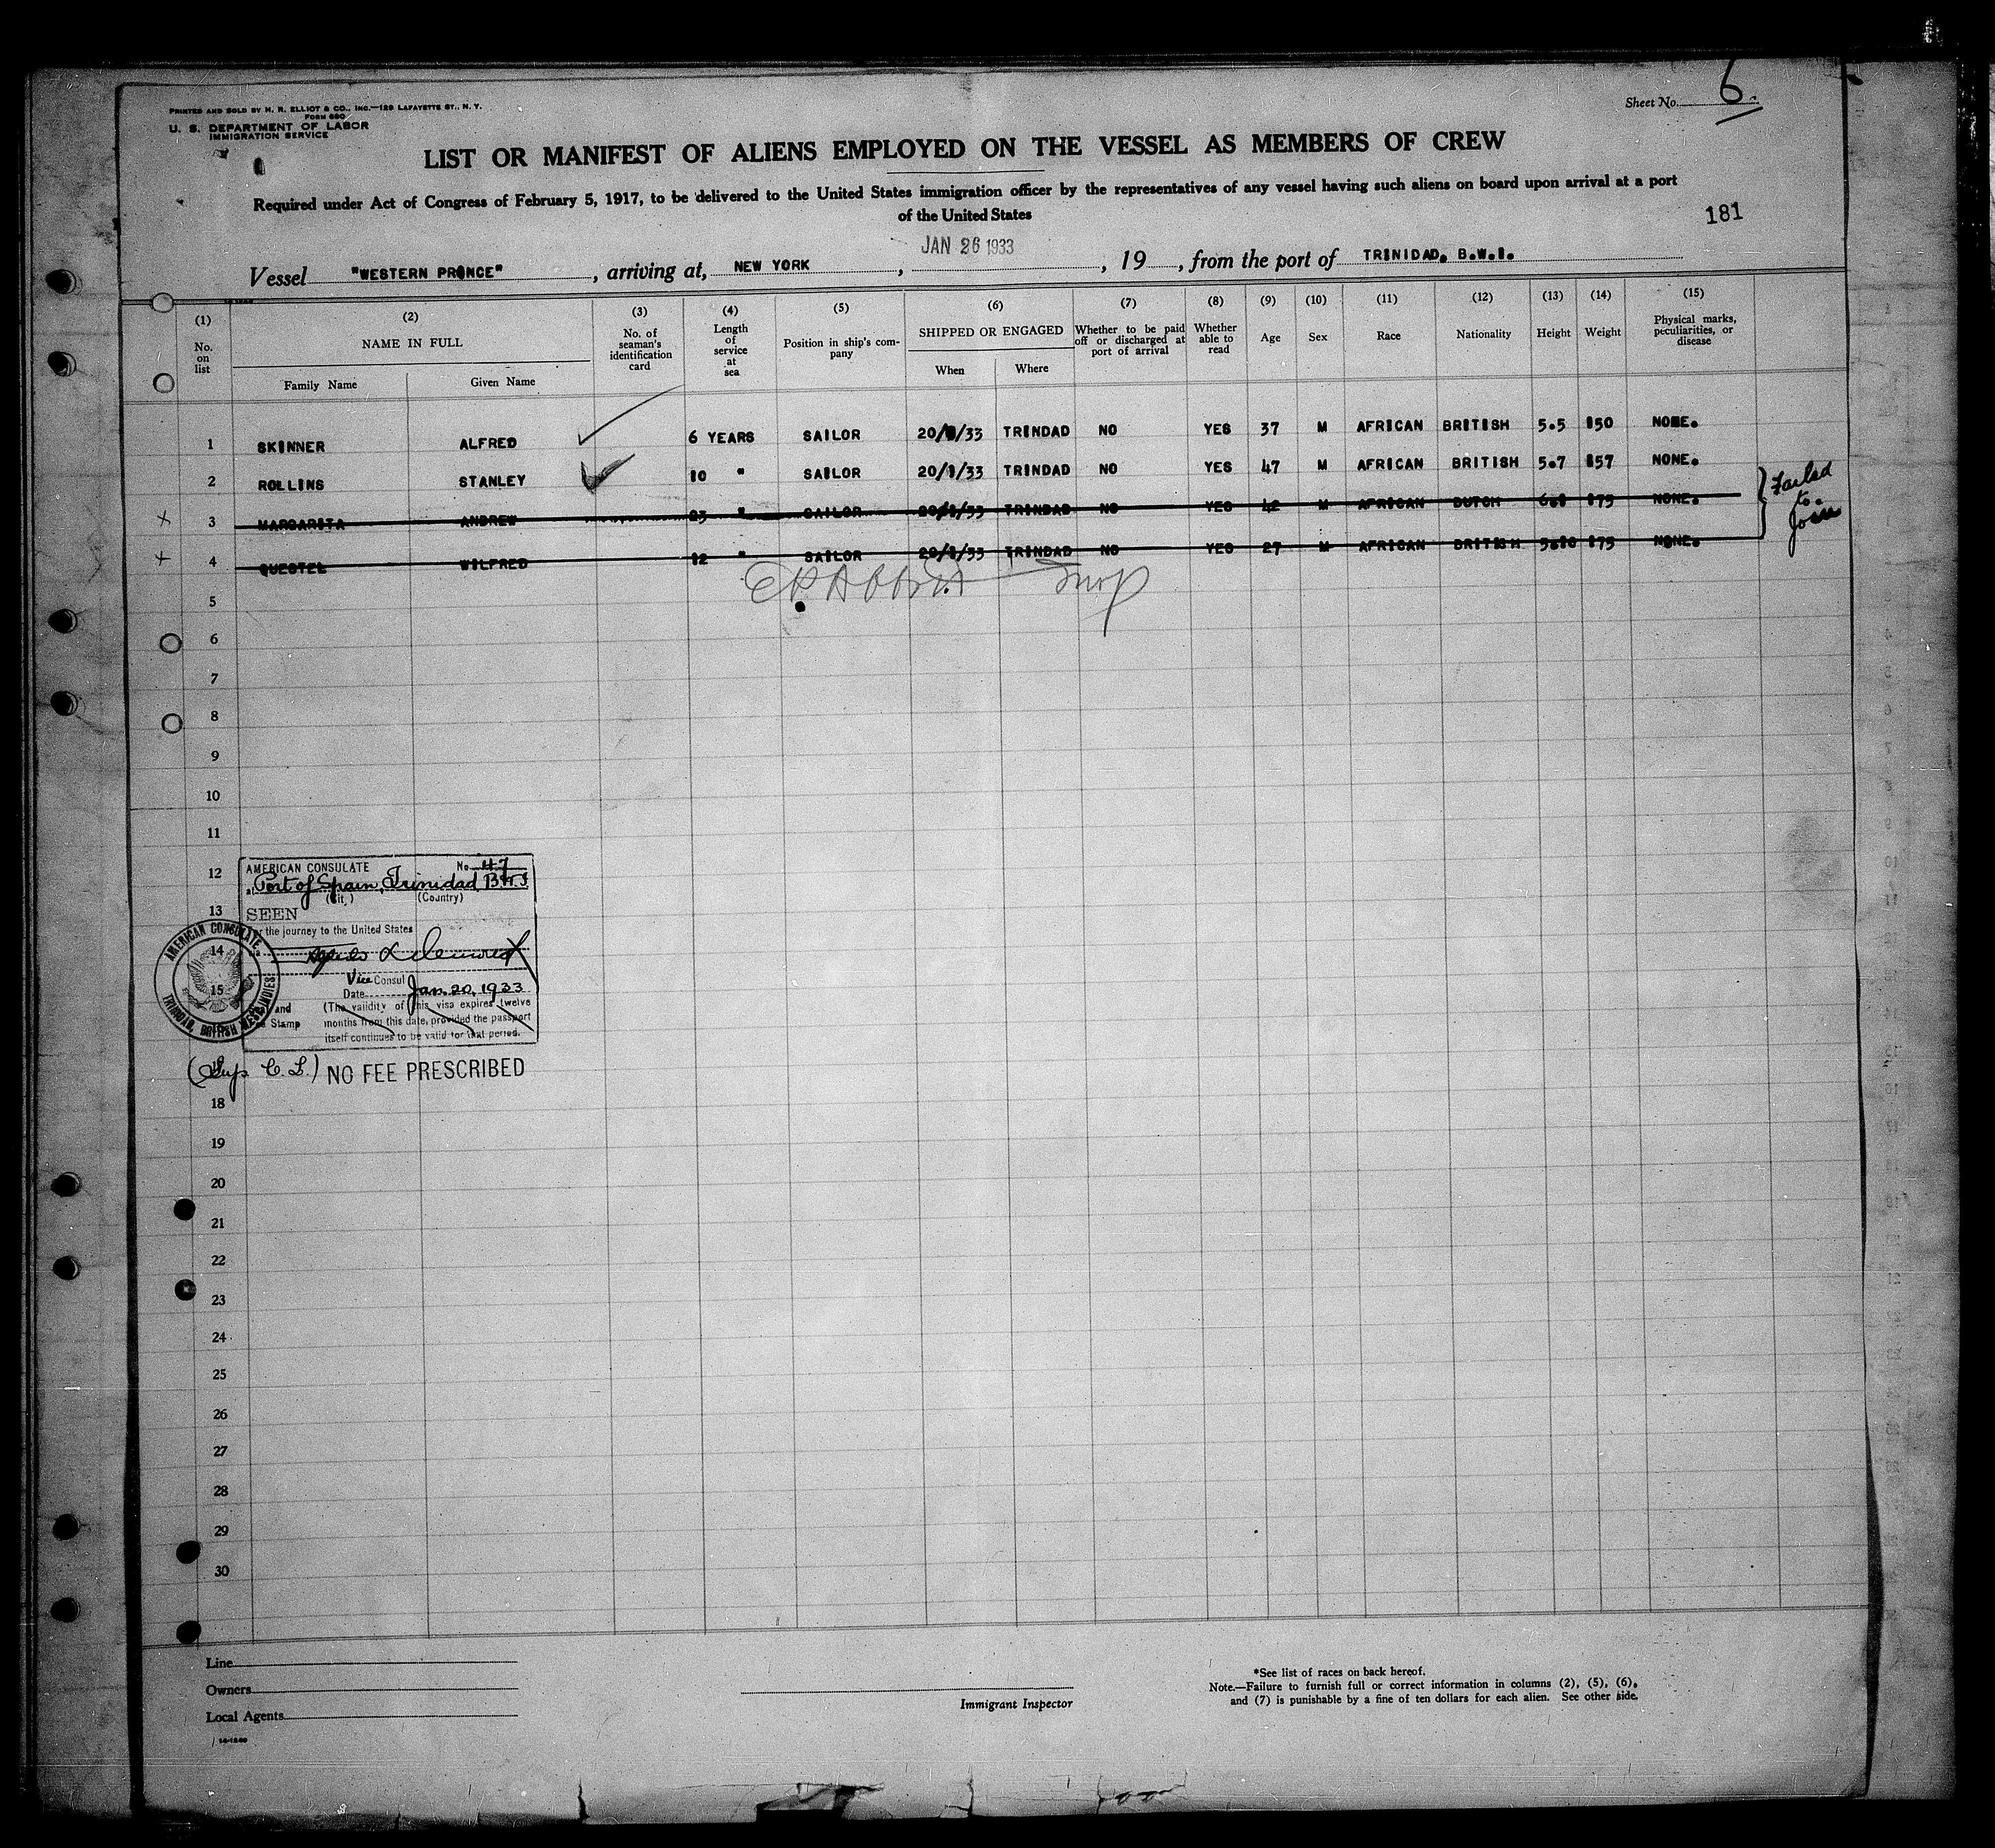 Sheet No. 6
PRINTED AND SOLD BY H. R. ELLIOT & CO., INC.—129 LAFAYETTE ST., N. Y.
FORM 680
U. S. DEPARTMENT OF LABOR
IMMIGRATION SERVICE
LIST OR MANIFEST OF ALIENS EMPLOYED ON THE VESSEL AS MEMBERS OF CREW
Required under Act of Congress of February 5, 1917, to be delivered to the United States immigration officer by the representatives of any vessel having such aliens on board upon arrival at a port
of the United States
181
JAN 26 1933
Vessel "WESTERN PRINCE", arriving at, NEW YORK, , 19 , from the port of TRINIDAD, B.W.I.
(1) (2) (3) (4) (5) (6) (7) (8) (9) (10) (11) (12) (13) (14) (15)
No. on list NAME IN FULL Family Name Given Name No. of seaman's identification card Length of service at sea Position in ship's company SHIPPED OR ENGAGED When Where Whether to be paid off or discharged at port of arrival Whether able to read Age Sex Race Nationality Height Weight Physical marks, peculiarities, or disease
1 SKINNER ALFRED 6 YEARS SAILOR 20/1/33 TRINDAD NO YES 37 M AFRICAN BRITISH 5.5 150 NONE.
2 ROLLINS STANLEY 10 " SAILOR 20/1/33 TRINDAD NO YES 47 M AFRICAN BRITISH 5.7 157 NONE.
3 MARGARITA ANDREW 23 " SAILOR 20/1/33 TRINDAD NO YES 42 M AFRICAN DUTCH 6.1 175 NONE.
4 QUESTEL WILFRED 12 " SAILOR 20/1/33 TRINDAD NO YES 27 M AFRICAN BRITISH 5.10 175 NONE.
Failed
to
Join
5
6
7
8
9
10
11
12
13
14
15
18
19
20
21
22
23
24
25
26
27
28
29
30
AMERICAN CONSULATE No. 47
at Port of Spain, Trinidad, B.W.I.
(City) (Country)
SEEN
For the journey to the United States
Vice Consul
Date Jan. 20, 1933
(The validity of this visa expires twelve
months from this date, provided the passport
itself continues to be valid for that period.
and
Stamp
AMERICAN CONSULATE
TRINIDAD, BRITISH WEST INDIES
(Sup. C. L.) NO FEE PRESCRIBED
Line
Owners
Local Agents
Immigrant Inspector
*See list of races on back hereof.
Note.—Failure to furnish full or correct information in columns (2), (5), (6),
and (7) is punishable by a fine of ten dollars for each alien. See other side.